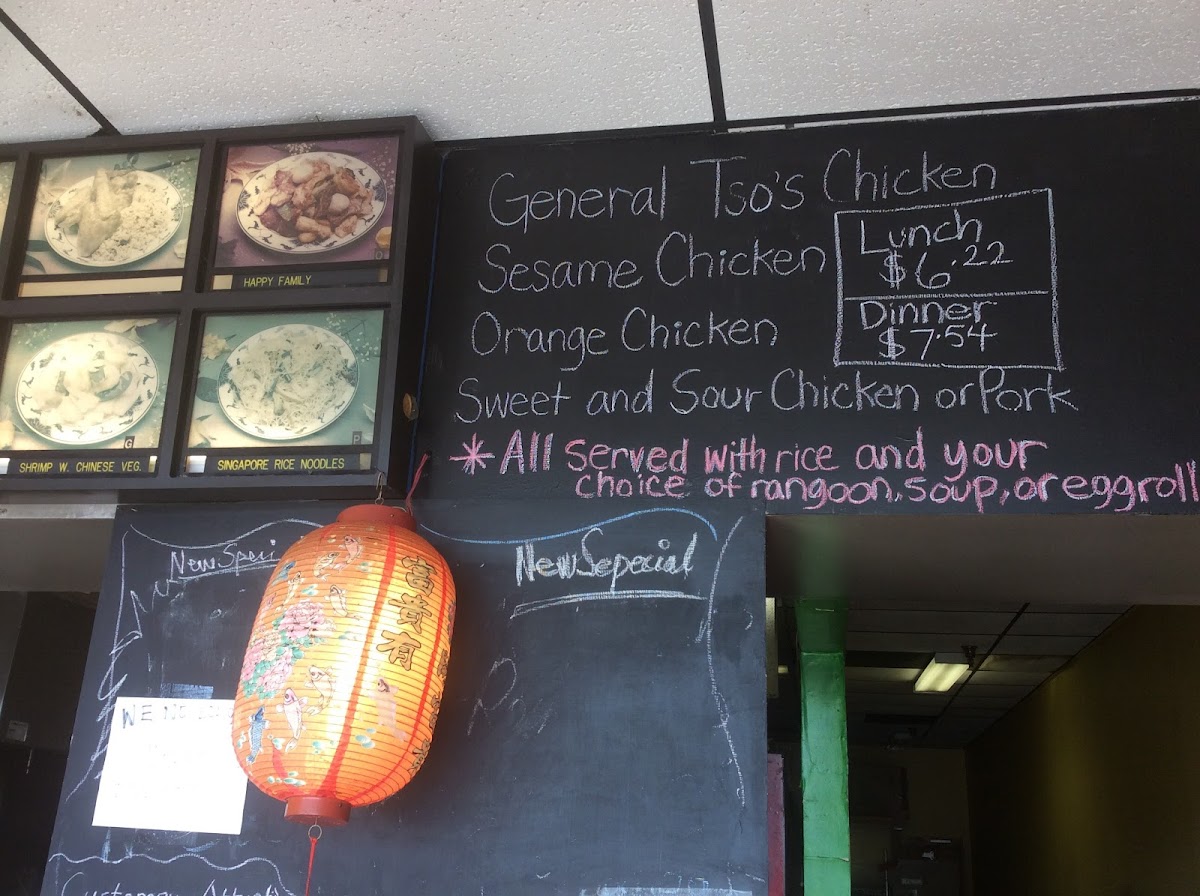 General Tso's Chicken
Sesame Chicken
Orange Chicken
Sweet and Sour Chicken or Pork
Lunch
$6.22
Dinner
$7.54
* All served with rice and your
choice of rangoon, soup, or eggroll
HAPPY FAMILY
SHRIMP W. CHINESE VEG.
G
SINGAPORE RICE NOODLES
P
New Speci
New Sepecial
WE NO
Customer
有